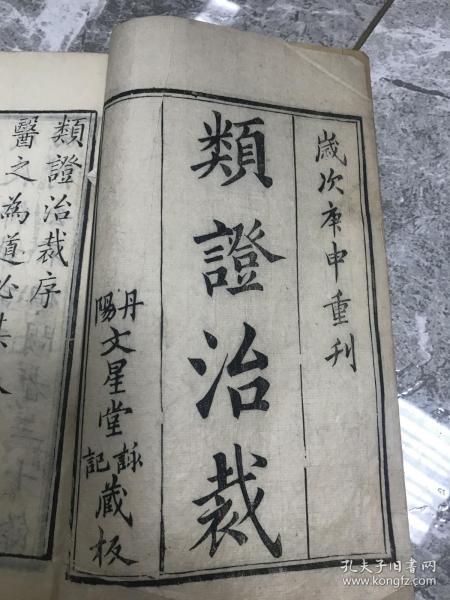 歲次庚申重刋
類證治裁
丹陽文星堂詠記藏板
類證治裁序
醫之為道必其人
孔夫子旧书网
www.kongfz.com